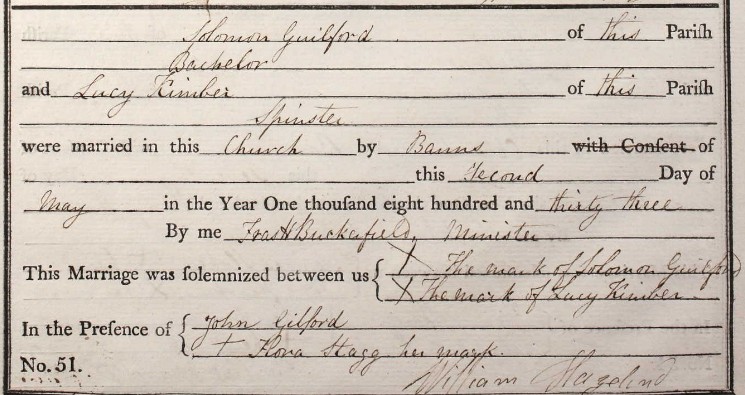 Solomon Guilford of this Pariſh
Bachelor
and Lucy Kimber of this Pariſh
Spinster
were married in this Church by Banns with Conſent of
this Second Day of
May in the Year One thouſand eight hundred and thirty three
By me Fras H Buckerfield, Minister
This Marriage was ſolemnized between us { X The mark of Solomon Guilford
X The mark of Lucy Kimber
In the Preſence of { John Gilford
+ Kora Stagg her mark
No. 51. William